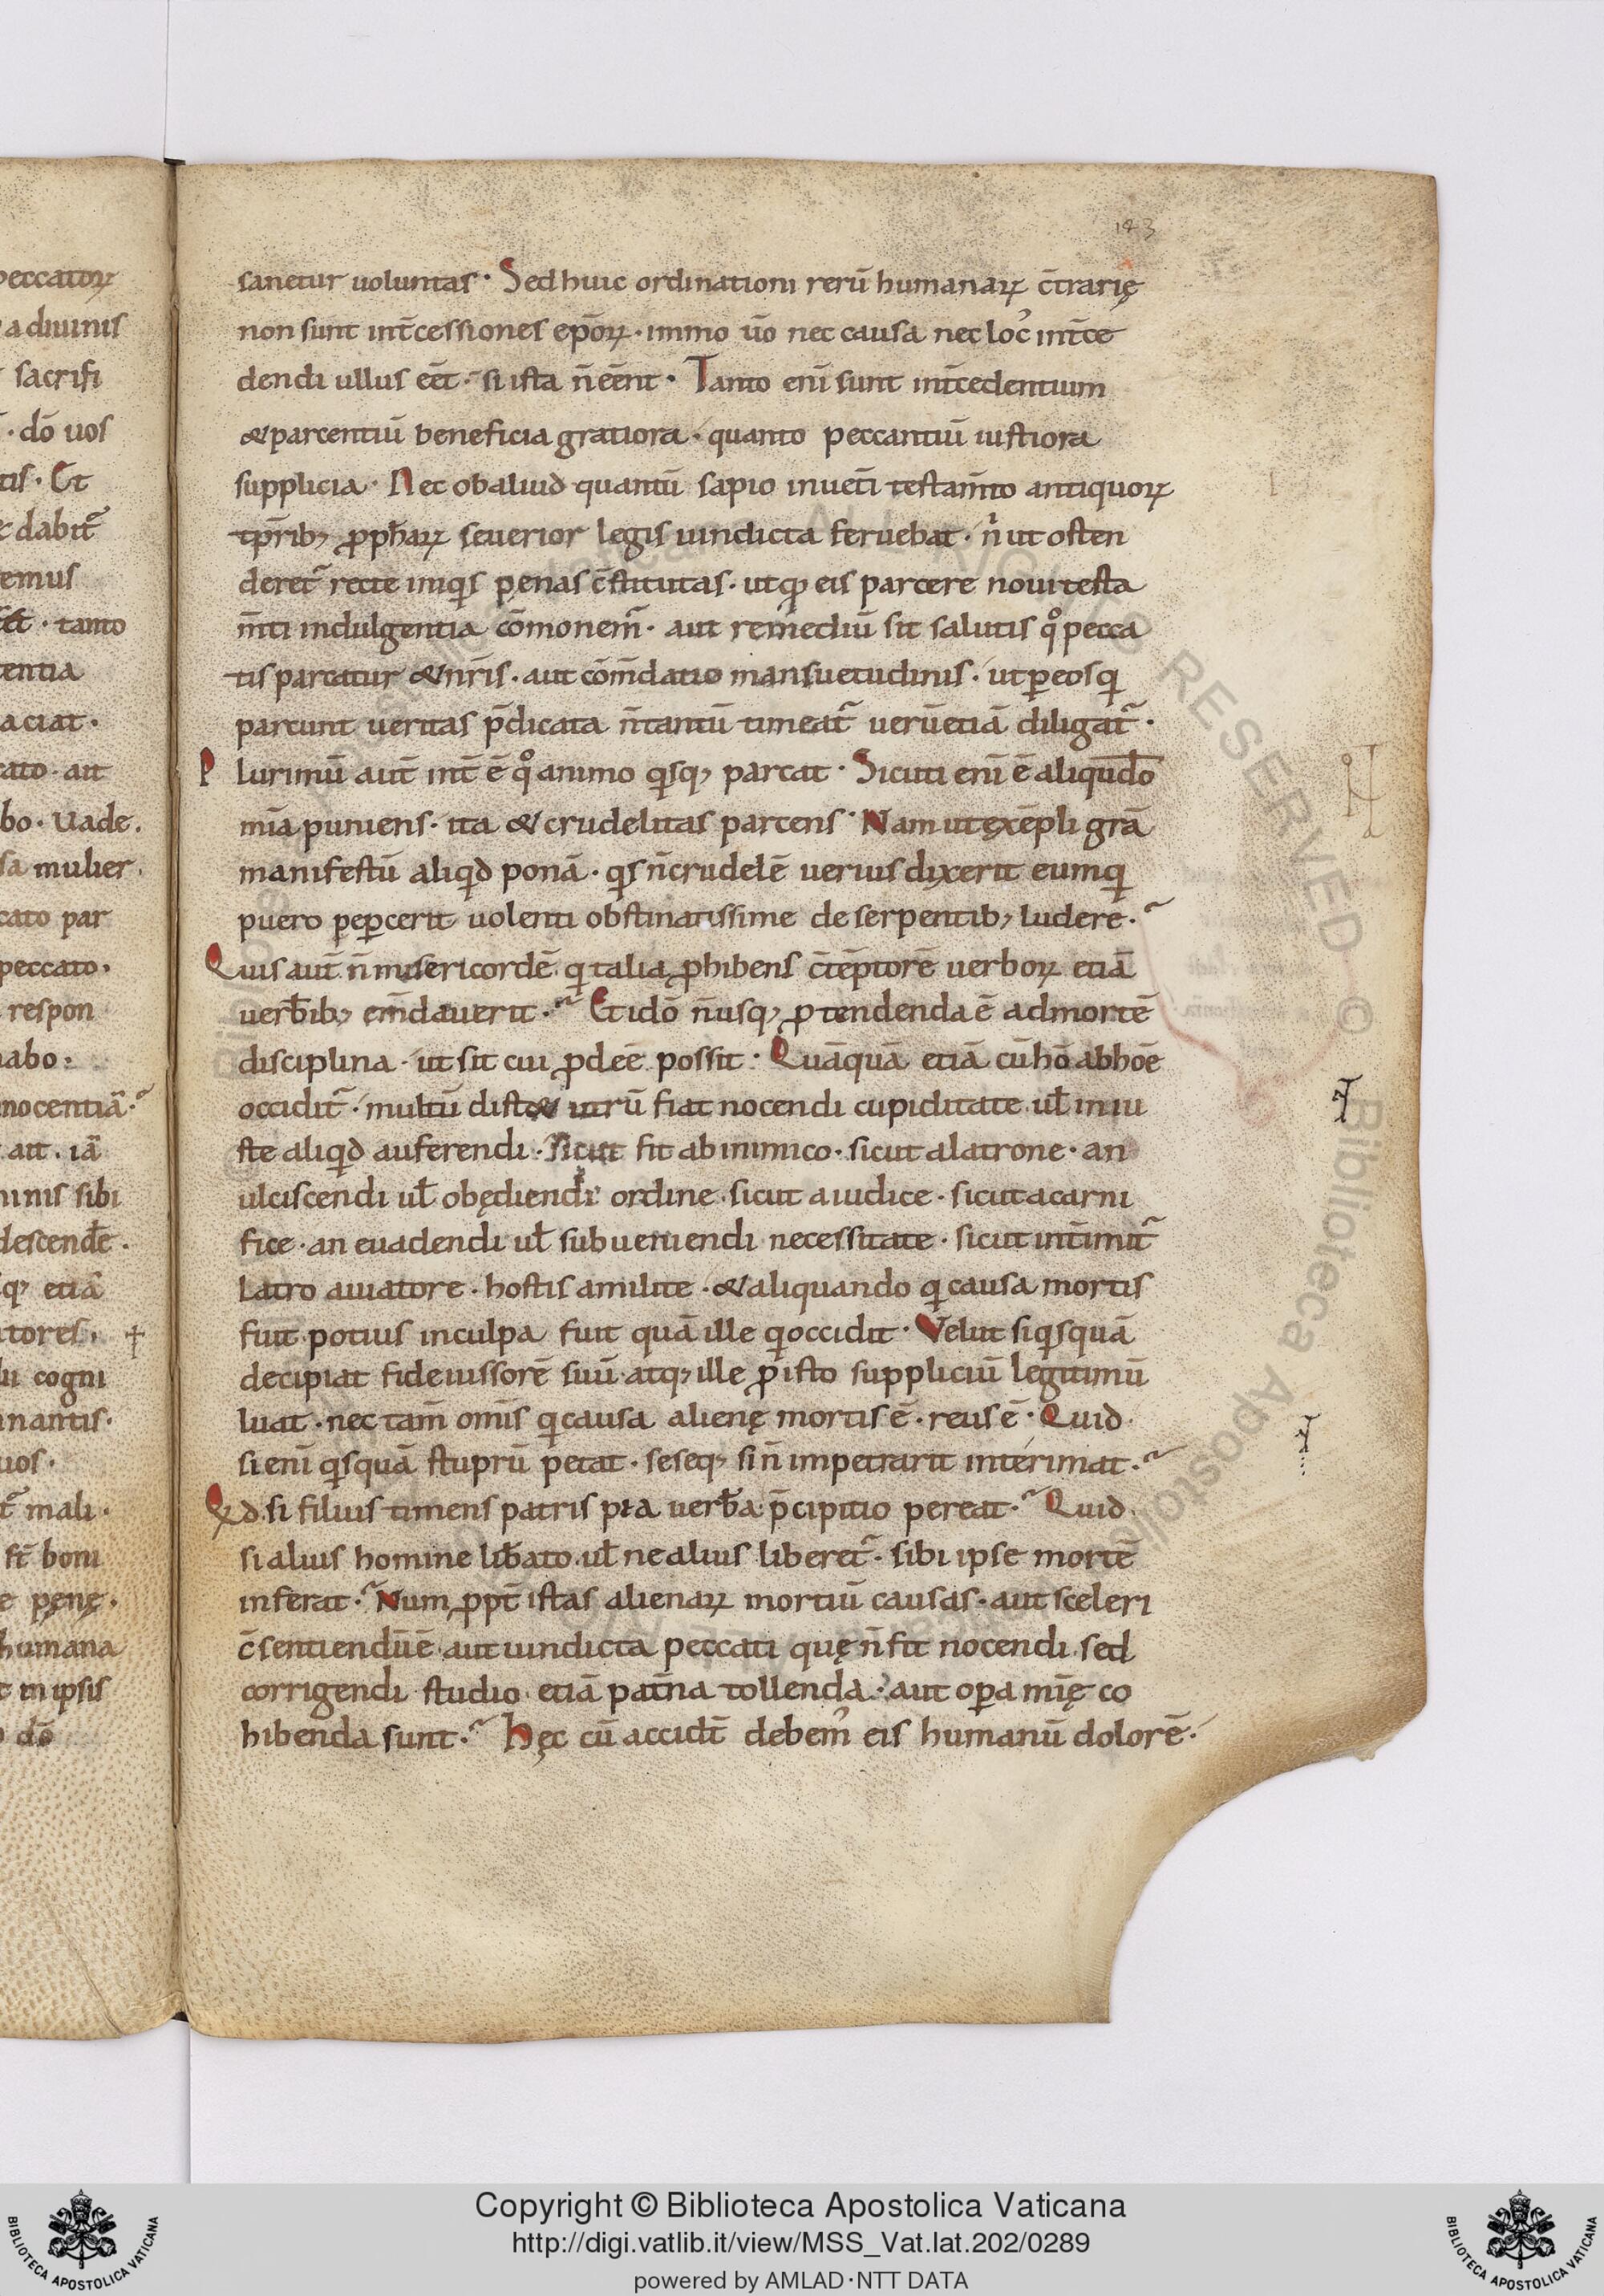 143
peccatoꝝ
a diuinis
sacrifi
· dō uos
tis · Et
dabit᷑
emus
tanto
tentia
aciat ·
cato · ait
bo · Vade ·
sa mulier ·
cato par
peccato ·
respon
nabo :
nocentiā ·
ait · iā
minis sibi
descendē ·
qꝫ etiā
tores ·
cogni
nantis ·
uos ·
mali ·
boni
penę ·
humana
in ipsis
dō
sanetur uoluntas · Sed huic ordinationi rerū humanaꝝ c̄trarię
non sunt int̄cessiones ep̄oꝝ · immo ūo nec causa nec loc᾿ int̄ce
dendi ullus eēt · si ista n̄ eēnt · Tanto eni̅ sunt int̄cedentium
& parcentiū beneficia gratiora · quanto peccantiū iustiora
supplicia · Nec ob aliud quantū sapio in uet̄i testam̄to antiquoꝝ
tp̄ribꝫ ꝓph̄aꝝ seuerior legis uindicta feruebat · n̉ ut osten
deret᷑ recte iniqis penas c̄stitutas · ut qꝫ eis parcere noui testa
m̄ti indulgentia cōmonem᷑ · aut remediū sit salutis qͦ pecca
tis parcatur & nr̄is · aut cōm̄datio mansuetudinis · ut ꝑ eos qi
parcunt ueritas p̄dicata n̄ tantū timeat᷑ uerū etiā diligat᷑ ·
Plurimū aut̄ int̄ ē qͦ animo qisqꝫ parcat · Sicuti eni̅ ē aliquādō
mīa puniens · ita & crudelitas parcens · Nam ut exēpli grā
manifestū aliqid ponā · qis n̄ crudelē uerius dixerit eum qi
puero peꝑcerit uolenti obstinatissime de serpentibꝫ ludere ·
Quis aut̄ n̄ misericordē qi talia ꝓhibens c̄tēptorē uerboꝝ etiā
uerb̄ibꝫ em̄dauerit · Et idō n̄ usqꝫ ꝓtendenda ē ad mortē
disciplina · ut sit cui ꝓdeē possit · Quāquā etiā cū hō ab hoē
occidit᷑ · multū dist& utrū fiat nocendi cupiditate ul̄ iniu
ste aliqid auferendi · sicut fit ab inimico · sicut a latrone · an
ulciscendi ul̄ obędiendi ordine · sicut a iudice · sicut a carni
fice · an euadendi ul̄ subueniendi necessitate · sicut int̄imit᷑
latro a uiatore · hostis a milite · & aliquando qi causa mortis
fuit potius in culpa fuit quā ille qi occidit · Velut si qisquā
decipiat fideiussorē suū atqꝫ ille ꝓ isto suppliciū legitimū
luat · nec tam̄ omīs qi causa alienę mortis ē · reus ē · Quid
si eni̅ qisquā stuprū petat · seseqꝫ si n̄ impetrarit interimat ·
Qd si filius timens patris pia uerb̄a p̄cipitio pereat · Quid
si alius homine lib̄ato ul̄ ne alius liberet᷑ · sibi ipse mortē
inferat · Num ꝓpt̄ istas alienaꝝ mortiū causas · aut sceleri
c̄sentiendū ē aut uindicta peccati quę n̄ fit nocendi sed
corrigendi studio etiā pat̄na tollenda · aut oꝑa mīę co
hibenda sunt · Hęc cū accidt̄ debem᾿ eis humanū dolorē ·
Copyright © Biblioteca Apostolica Vaticana
http://digi.vatlib.it/view/MSS_Vat.lat.202/0289
powered by AMLAD·NTT DATA
BIBLIOTECA APOSTOLICA VATICANA
BIBLIOTECA APOSTOLICA VATICANA